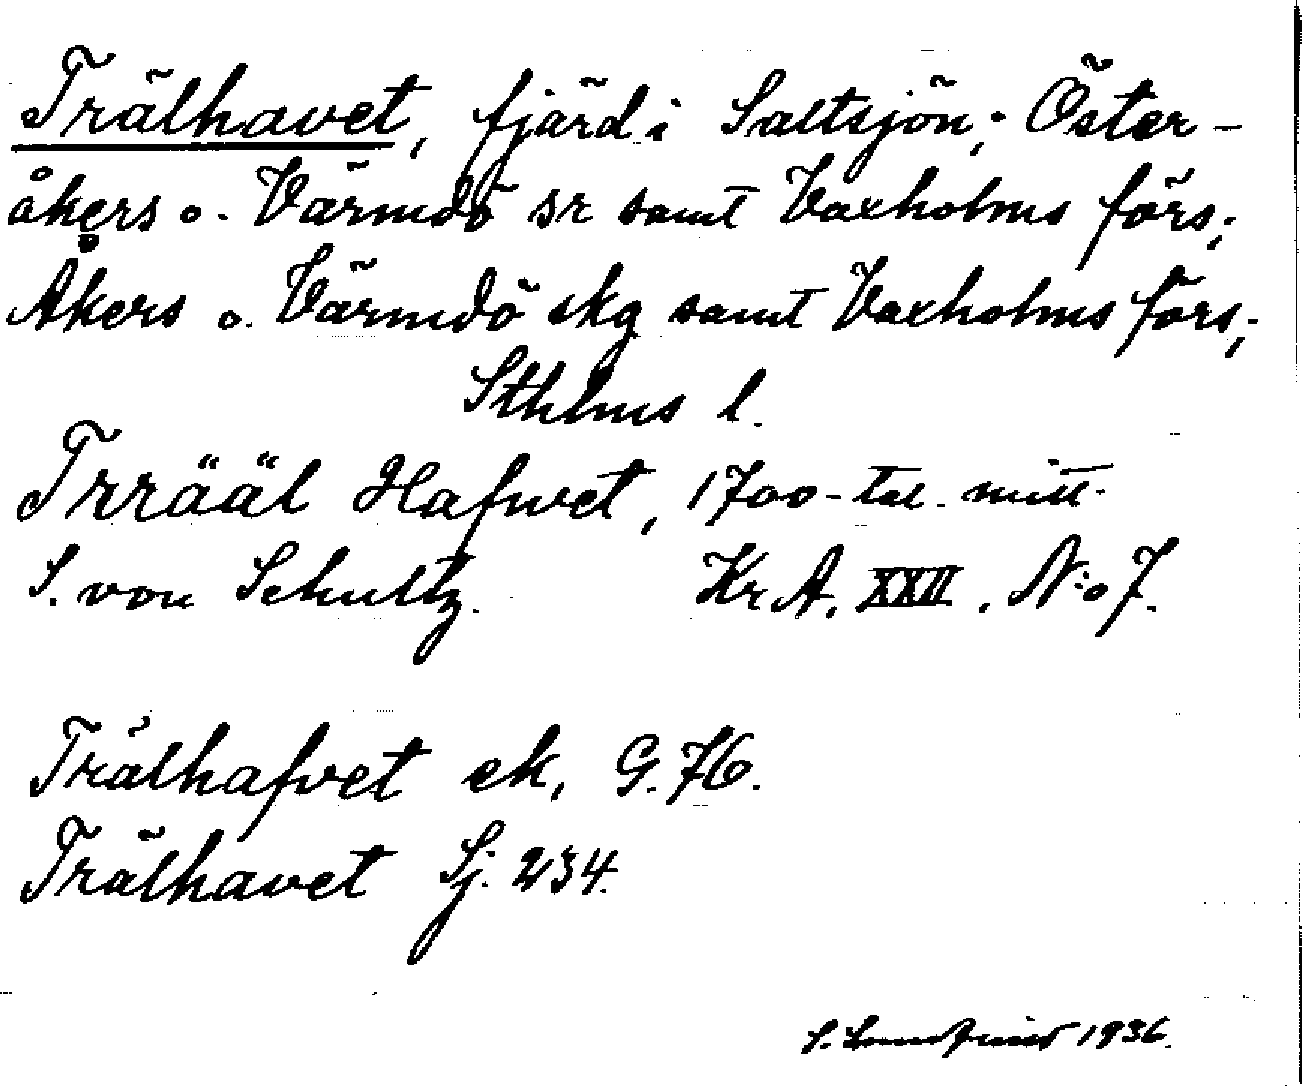 Trälhavet, fjärd i Saltsjön; Öster-
åkers o. Värmdö sr samt Vaxholms förs;
Åkers o. Värmdö skg samt Vaxholms förs;
Sthlms l.
Trrääl Hafwet, 1700-tal. mitt.
S. von Schultz. Kr A. XXII. N:o 7.
Trälhafvet ek, G. 76.
Trälhavet Sj. 234.
S. 1936.